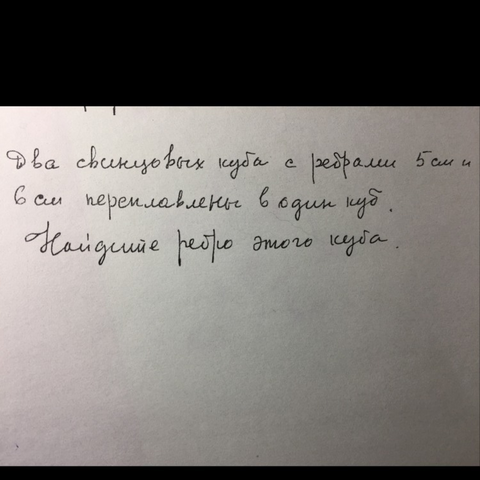 Два свинцовых куба с ребрами 5 см и
6 см переплавлены в один куб.
Найдите ребро этого куба.